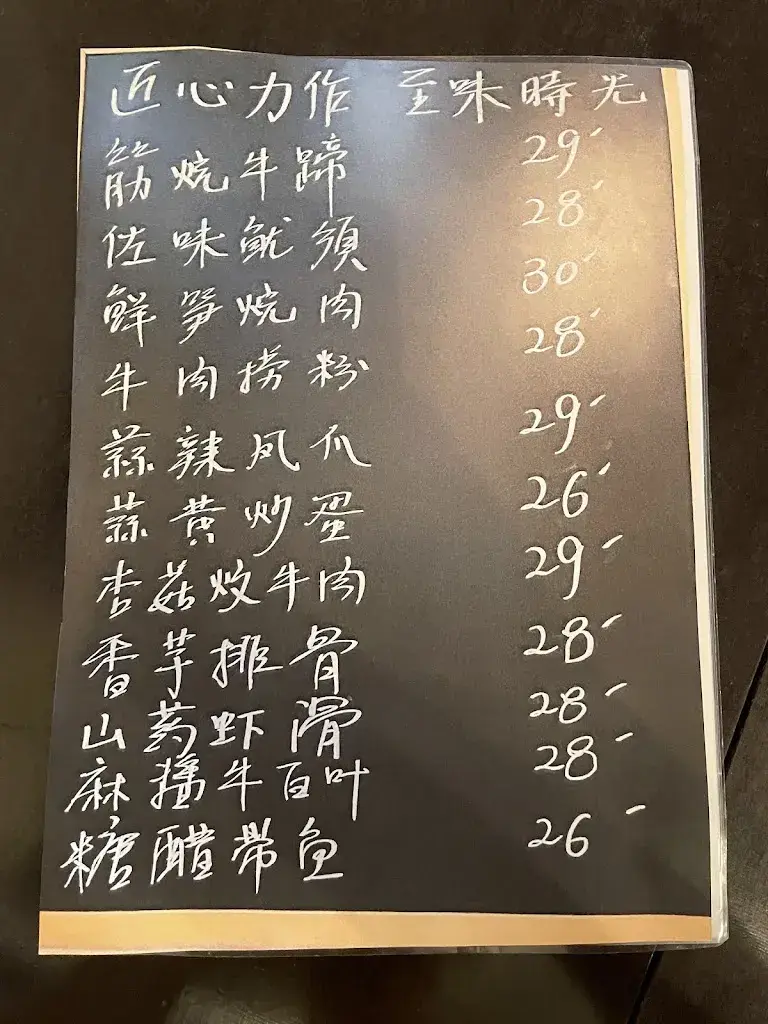 匠心力作 至味時光
筋烧牛蹄 29
佐味鱿須 28
鮮笋烧肉 30
牛肉捞粉 28
蒜辣凤爪 29
蒜黄炒蛋 26
杏菇炆牛肉 29
香芋排骨 28
山药虾滑 28
麻牛百叶 28
糖醋帶鱼 26